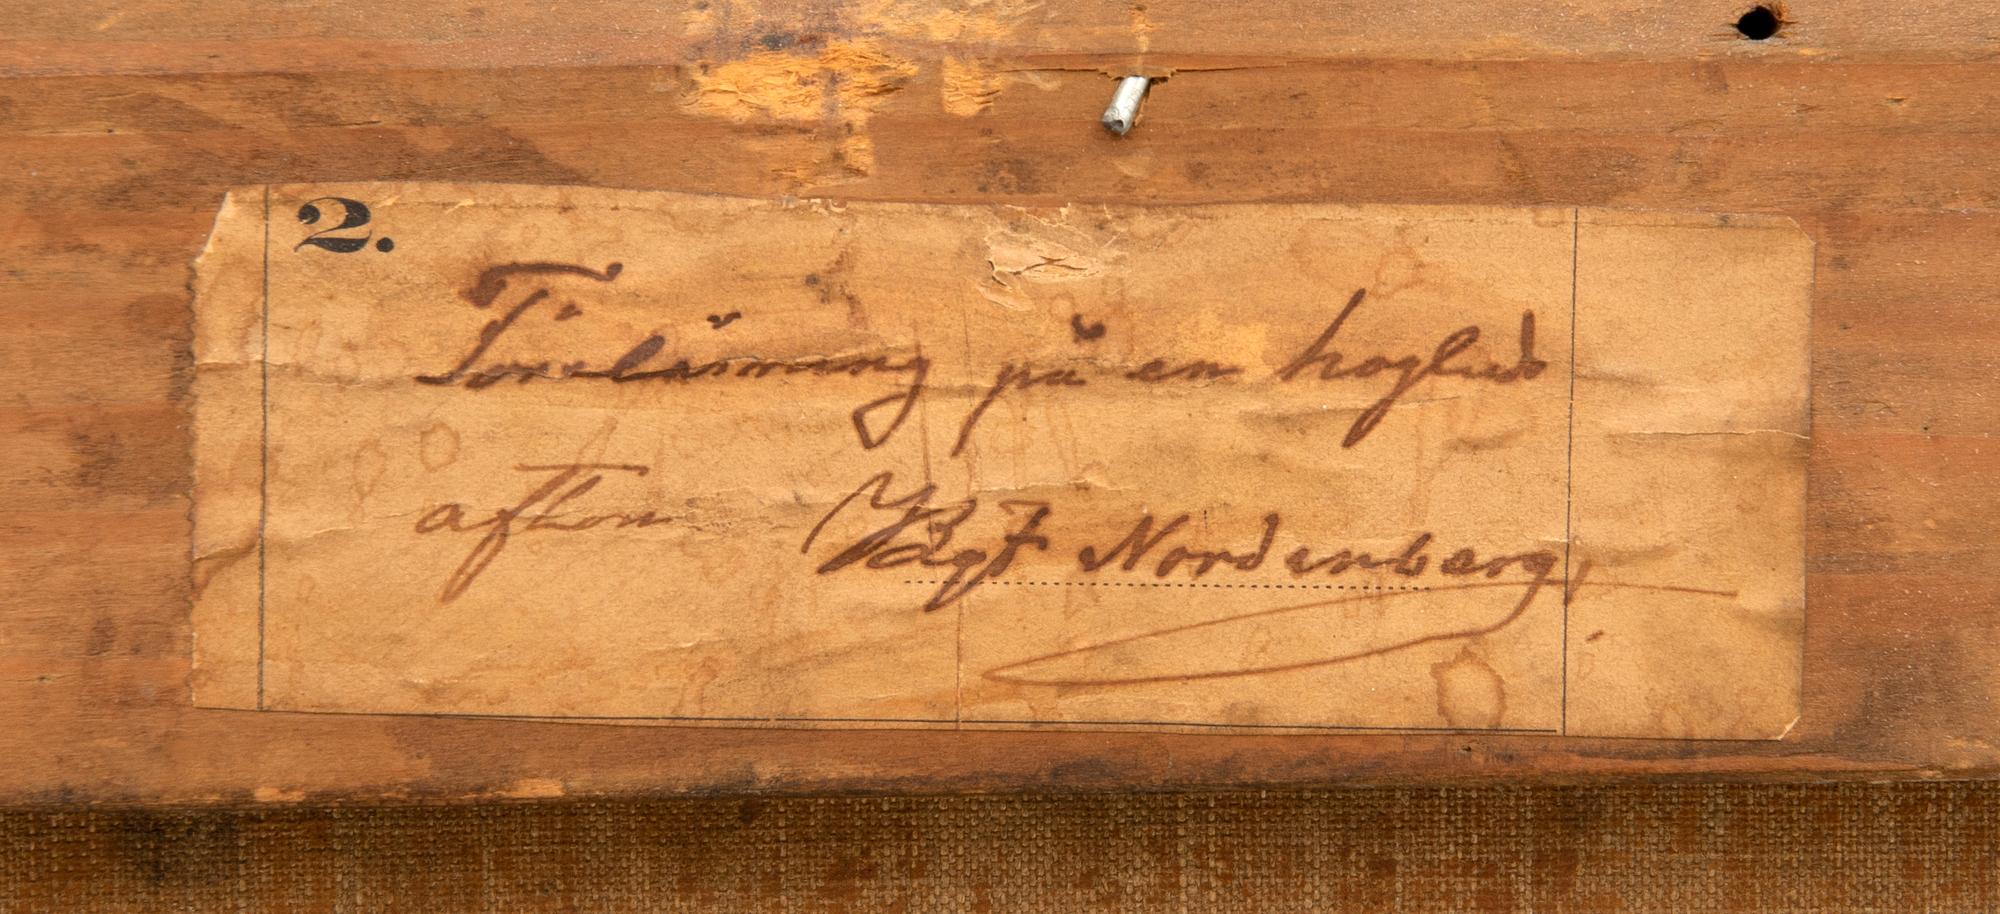 2.
Föreläsning på en hogtids
afton Bgt Nordenberg